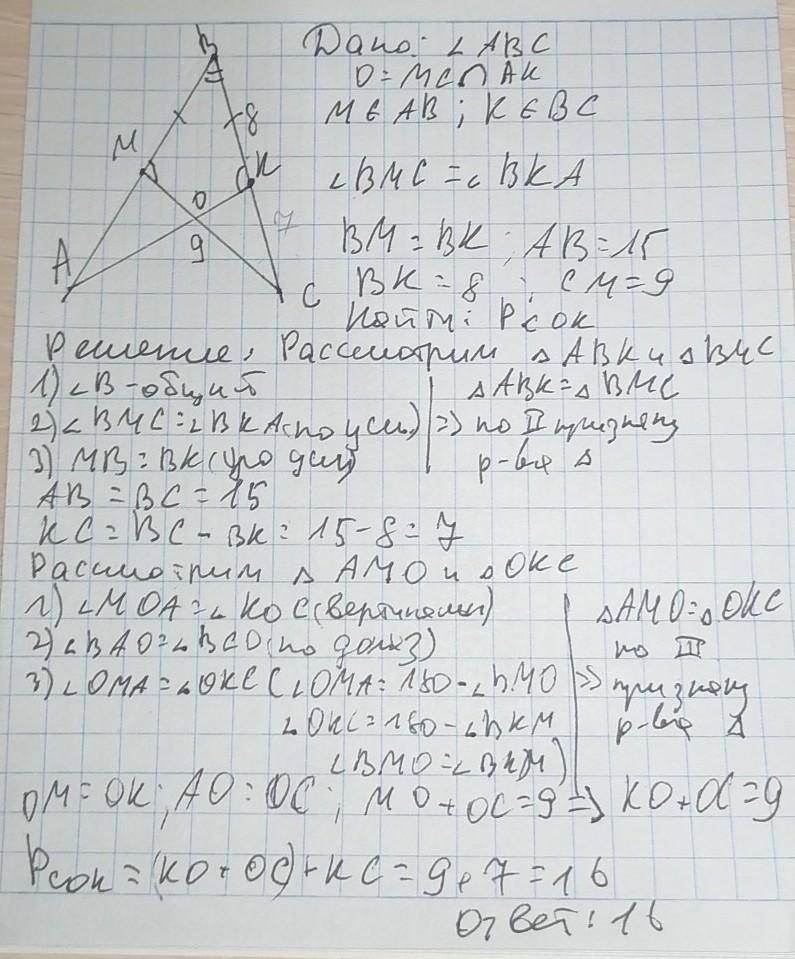 B
M
8
K
O
7
9
A
C
Дано: ∠ABC
O = MC ∩ AK
M ∈ AB ; K ∈ BC
∠BMC = ∠BKA
BM = BK ; AB = 15
BK = 8 ; CM = 9
Найти: PCOK
Решение, Рассмотрим △ABK и △BMC
1) ∠B - общий
2) ∠BMC = ∠BKA (по усл)
3) MB = BK ( усл)
△ABK = △BMC
=> по II признаку
р-ва △
AB = BC = 15
KC = BC - BK = 15 - 8 = 7
Рассмотрим △AMO и △OKC
1) ∠MOA = ∠KOC (вертикальны)
2) ∠BAO = ∠BCO (по доказ)
3) ∠OMA = ∠OKC (∠OMA = 180 - ∠BMO
∠OKC = 180 - ∠BKM
∠BMO = ∠BKM)
△AMO = △OKC
по III
=> признаку
р-ва △
OM = OK ; AO = OC ; MO + OC = 9 => KO + OC = 9
PCOK = (KO + OC) + KC = 9 + 7 = 16
Ответ: 16